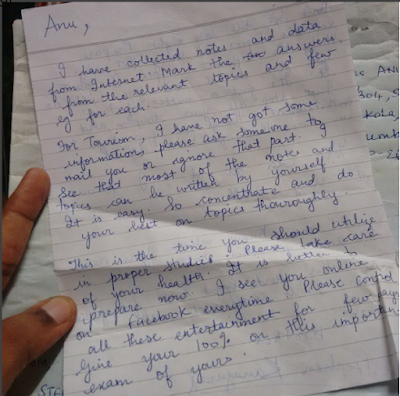 Anu,
I have collected notes and data
from Internet. Mark the answers
from the relevant topics and few
eg for each.
For Tourism, I have not got some
information, please ask someone to
mail you or ignore that part.
See that most of the notes and
topics can be written by yourself
It is easy. So concentrate and do
your best on topics thouroughly.
This is the time you should utilize
in proper studies. Please take care
of your health. It is better to
prepare now. I see you online
on Facebook everytime. Please control
all these entertainment for few days
Give your 100% on this important
exam of yours.